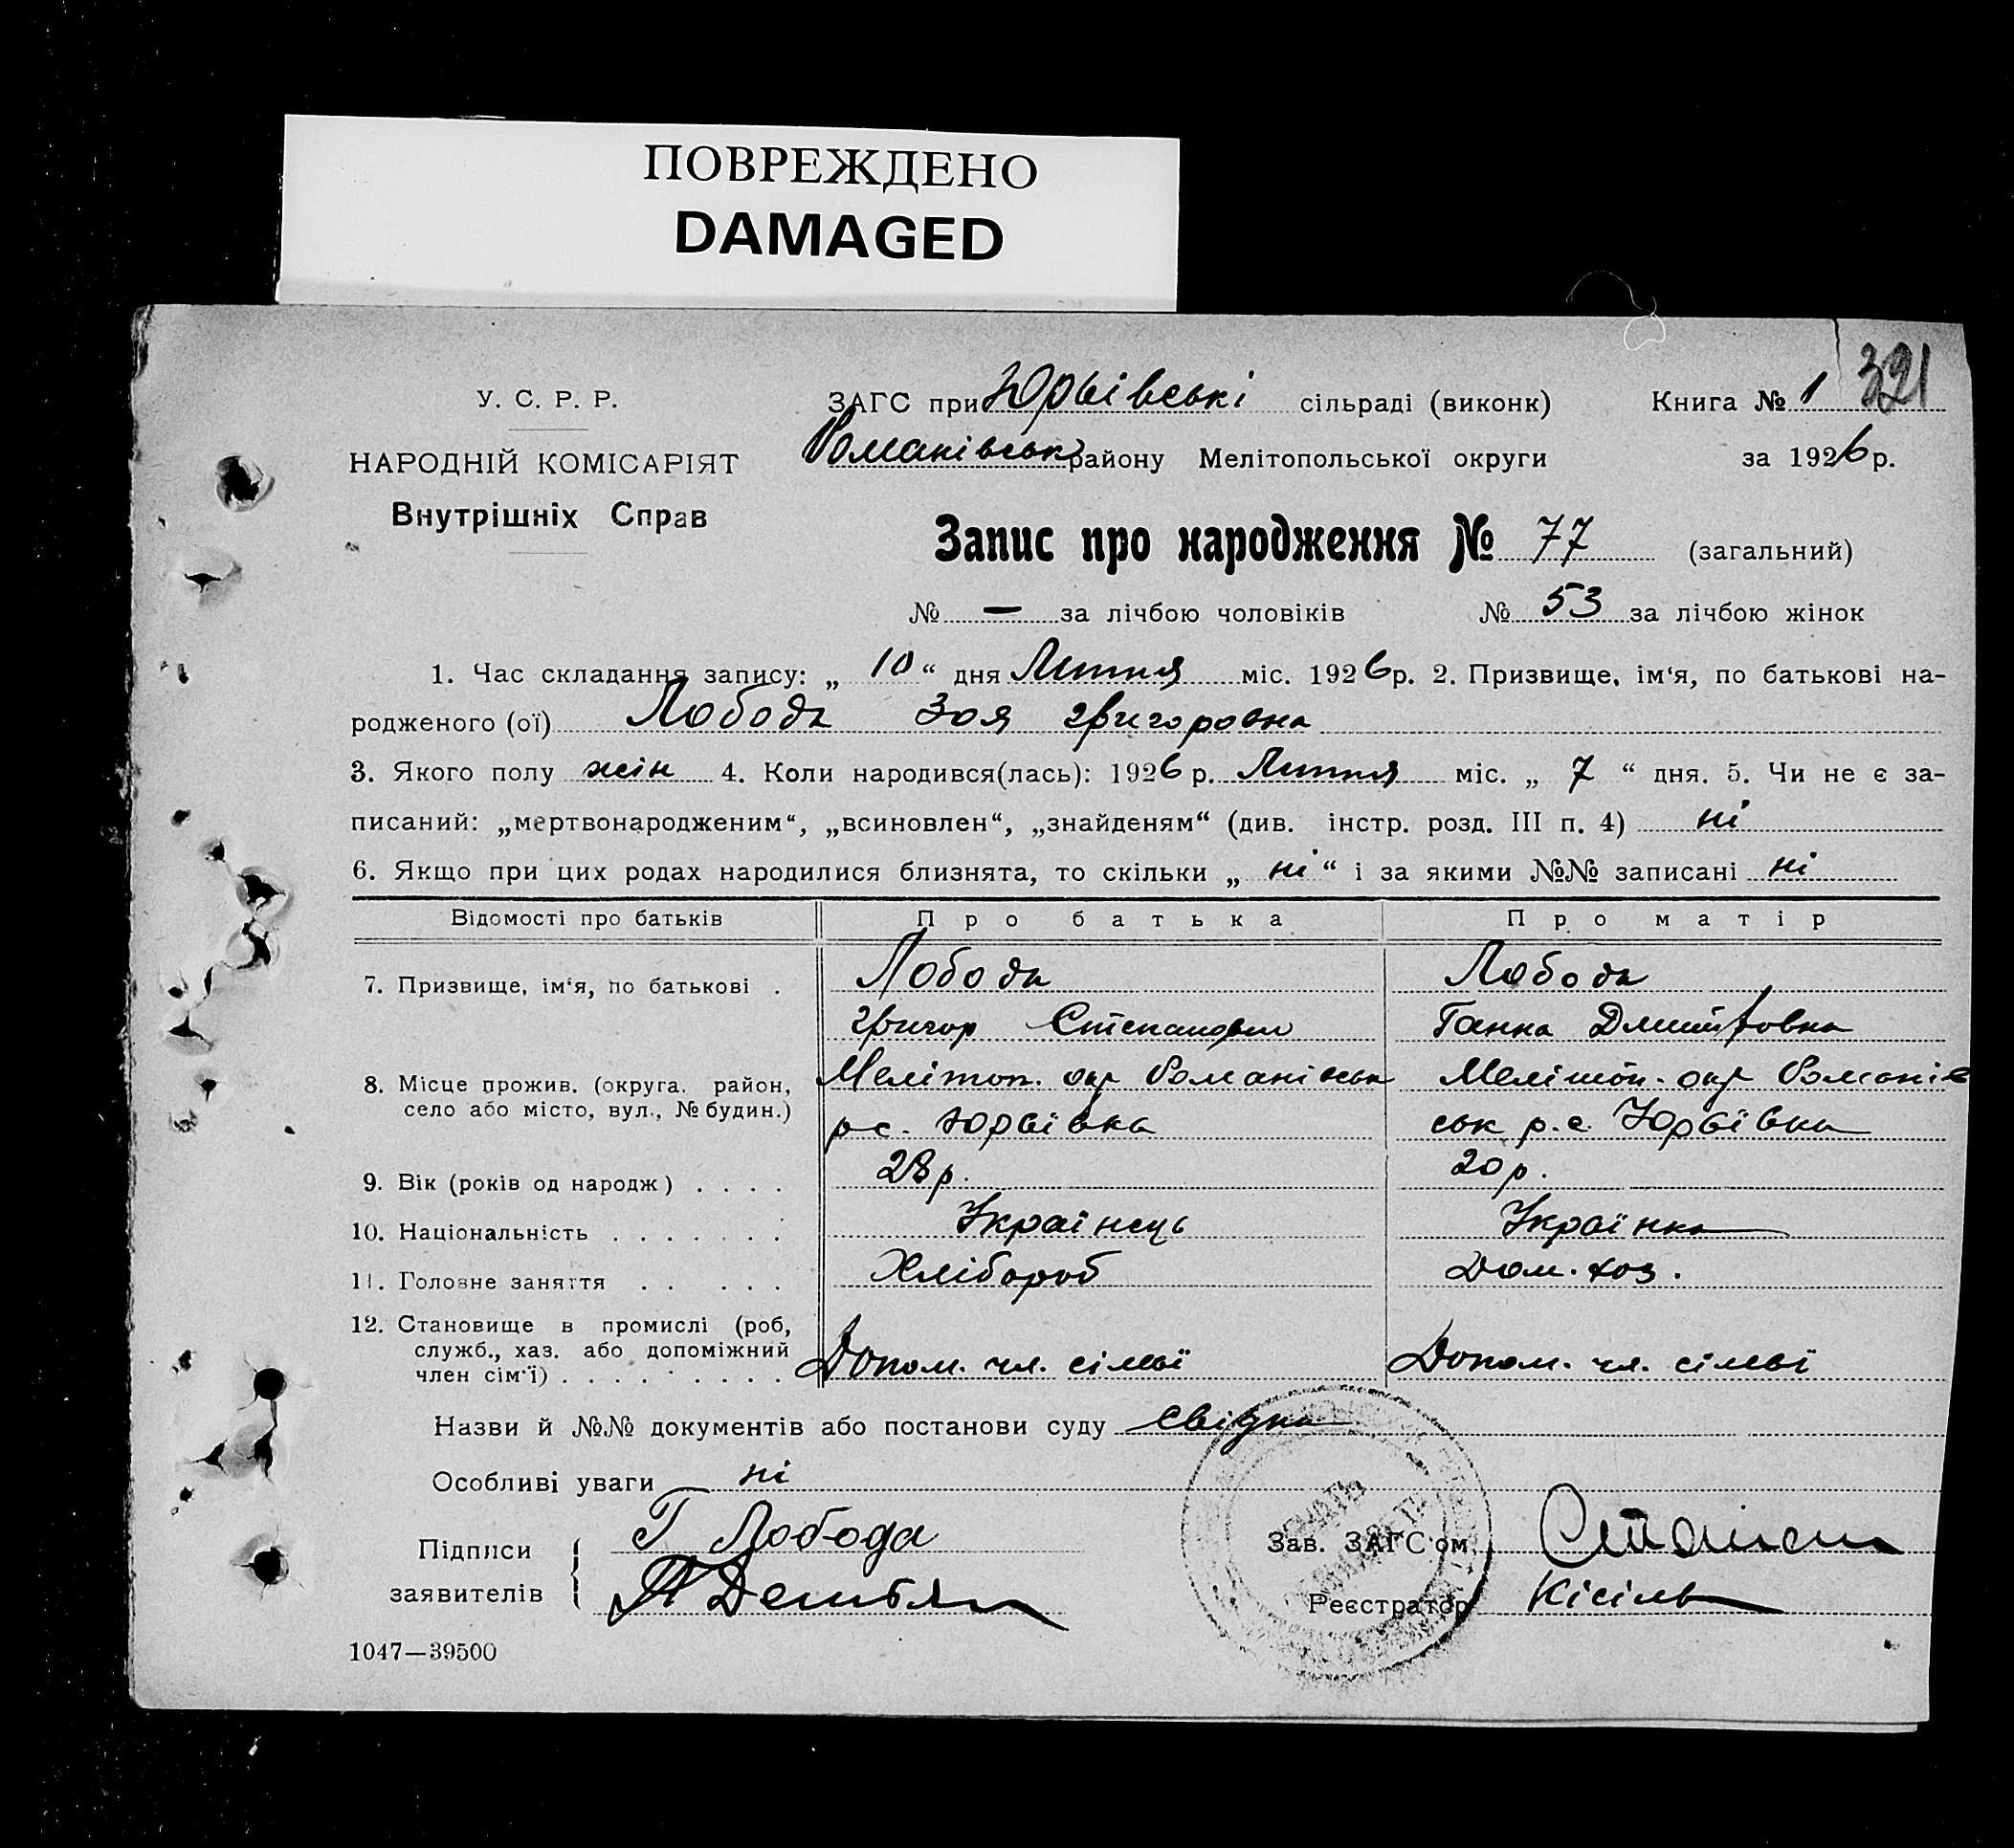 ПОВРЕЖДЕНО
DAMAGED
321
У. С. Р. Р.
НАРОДНІЙ КОМІСАРІЯТ
Внутрішніх Справ
ЗАГС при Юрьівські сільраді (виконк) Книга № 1
Романівськ району Мелітопольської округи за 1926 р.
Запис про народження № 77 (загальний)
№ — за лічбою чоловіків № 53 за лічбою жінок
1. Час складання запису: „ 10 “ дня Липня міс. 1926 р. 2. Призвище, ім‘я, по батькові на-
родженого (ої) Лобода Зоя Григоровна
3. Якого полу жін 4. Коли народився(лась): 1926 р. Липня міс. „ 7 “ дня. 5. Чи не є за-
писаний: „мертвонародженим“, „всиновлен“, „знайденям“ (див. інстр. розд. III п. 4) ні
6. Якщо при цих родах народилися близнята, то скільки „ ні “ і за якими №№ записані ні
Відомості про батьків Про батька Про матір
7. Призвище, ім‘я, по батькові . Лобода Лобода
Григор Степанович Ганна Дмитровна
8. Місце прожив. (округа. район, Мелітоп. окр Романівськ Мелітоп. окр Романів
село або місто, вул., № будин.) р с. Юрьівка ськ р. с. Юрьївка
9. Вік (років од народж) . . . . 28 р. 20 р.
10. Національність . . . . . . . Українець Українка
11. Головне заняття . . . . . Хлібороб Дом. хоз.
12. Становище в промислі (роб,
служб., хаз. або допоміжний
член сім‘ї) . . . . . . . . . Допом. чл. сімьї Допом. чл. сімьї
Назви й №№ документів або постанови суду свідки
Особливі уваги ні
Підписи
заявителів
Г Лобода
Зав. ЗАГС‘ом
Реєстратор Кісіль
1047—39500